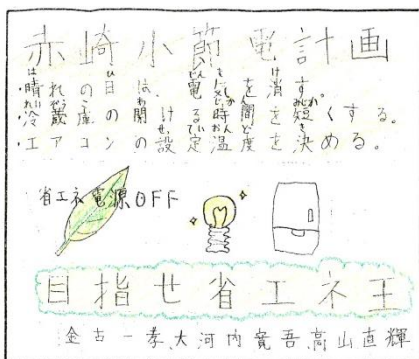 赤崎小節電計画
・晴れの日は、電気を消す。
・冷蔵庫の開ける時間を短くする。
・エアコンの設定温度を決める。
省エネ電源OFF
目指せ省エネ王
金古一孝、大河内寛吾、高山直輝